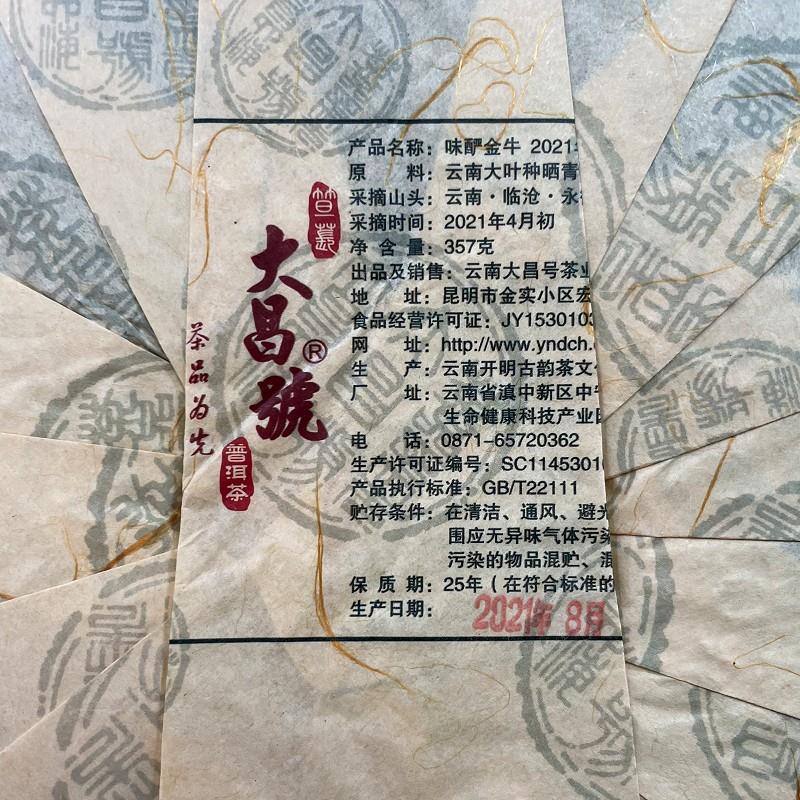 产品名称：味酽金牛 2021
原 料：云南大叶种晒青
采摘山头：云南·临沧·永
采摘时间：2021年4月初
净 含 量：357克
出品及销售：云南大昌号茶业
地 址：昆明市金实小区宏
食品经营许可证：JY1530103
网 址：http://www.yndch.
生 产：云南开明古韵茶文
厂 址：云南省滇中新区中
生命健康科技产业园
电 话：0871-65720362
生产许可证编号：SC1145301
产品执行标准：GB/T22111
贮存条件：在清洁、通风、避光
围应无异味气体污染
污染的物品混贮、混
保 质 期：25年（在符合标准的
生产日期：
2021年 8月
大昌號®
茶品为先
普洱茶